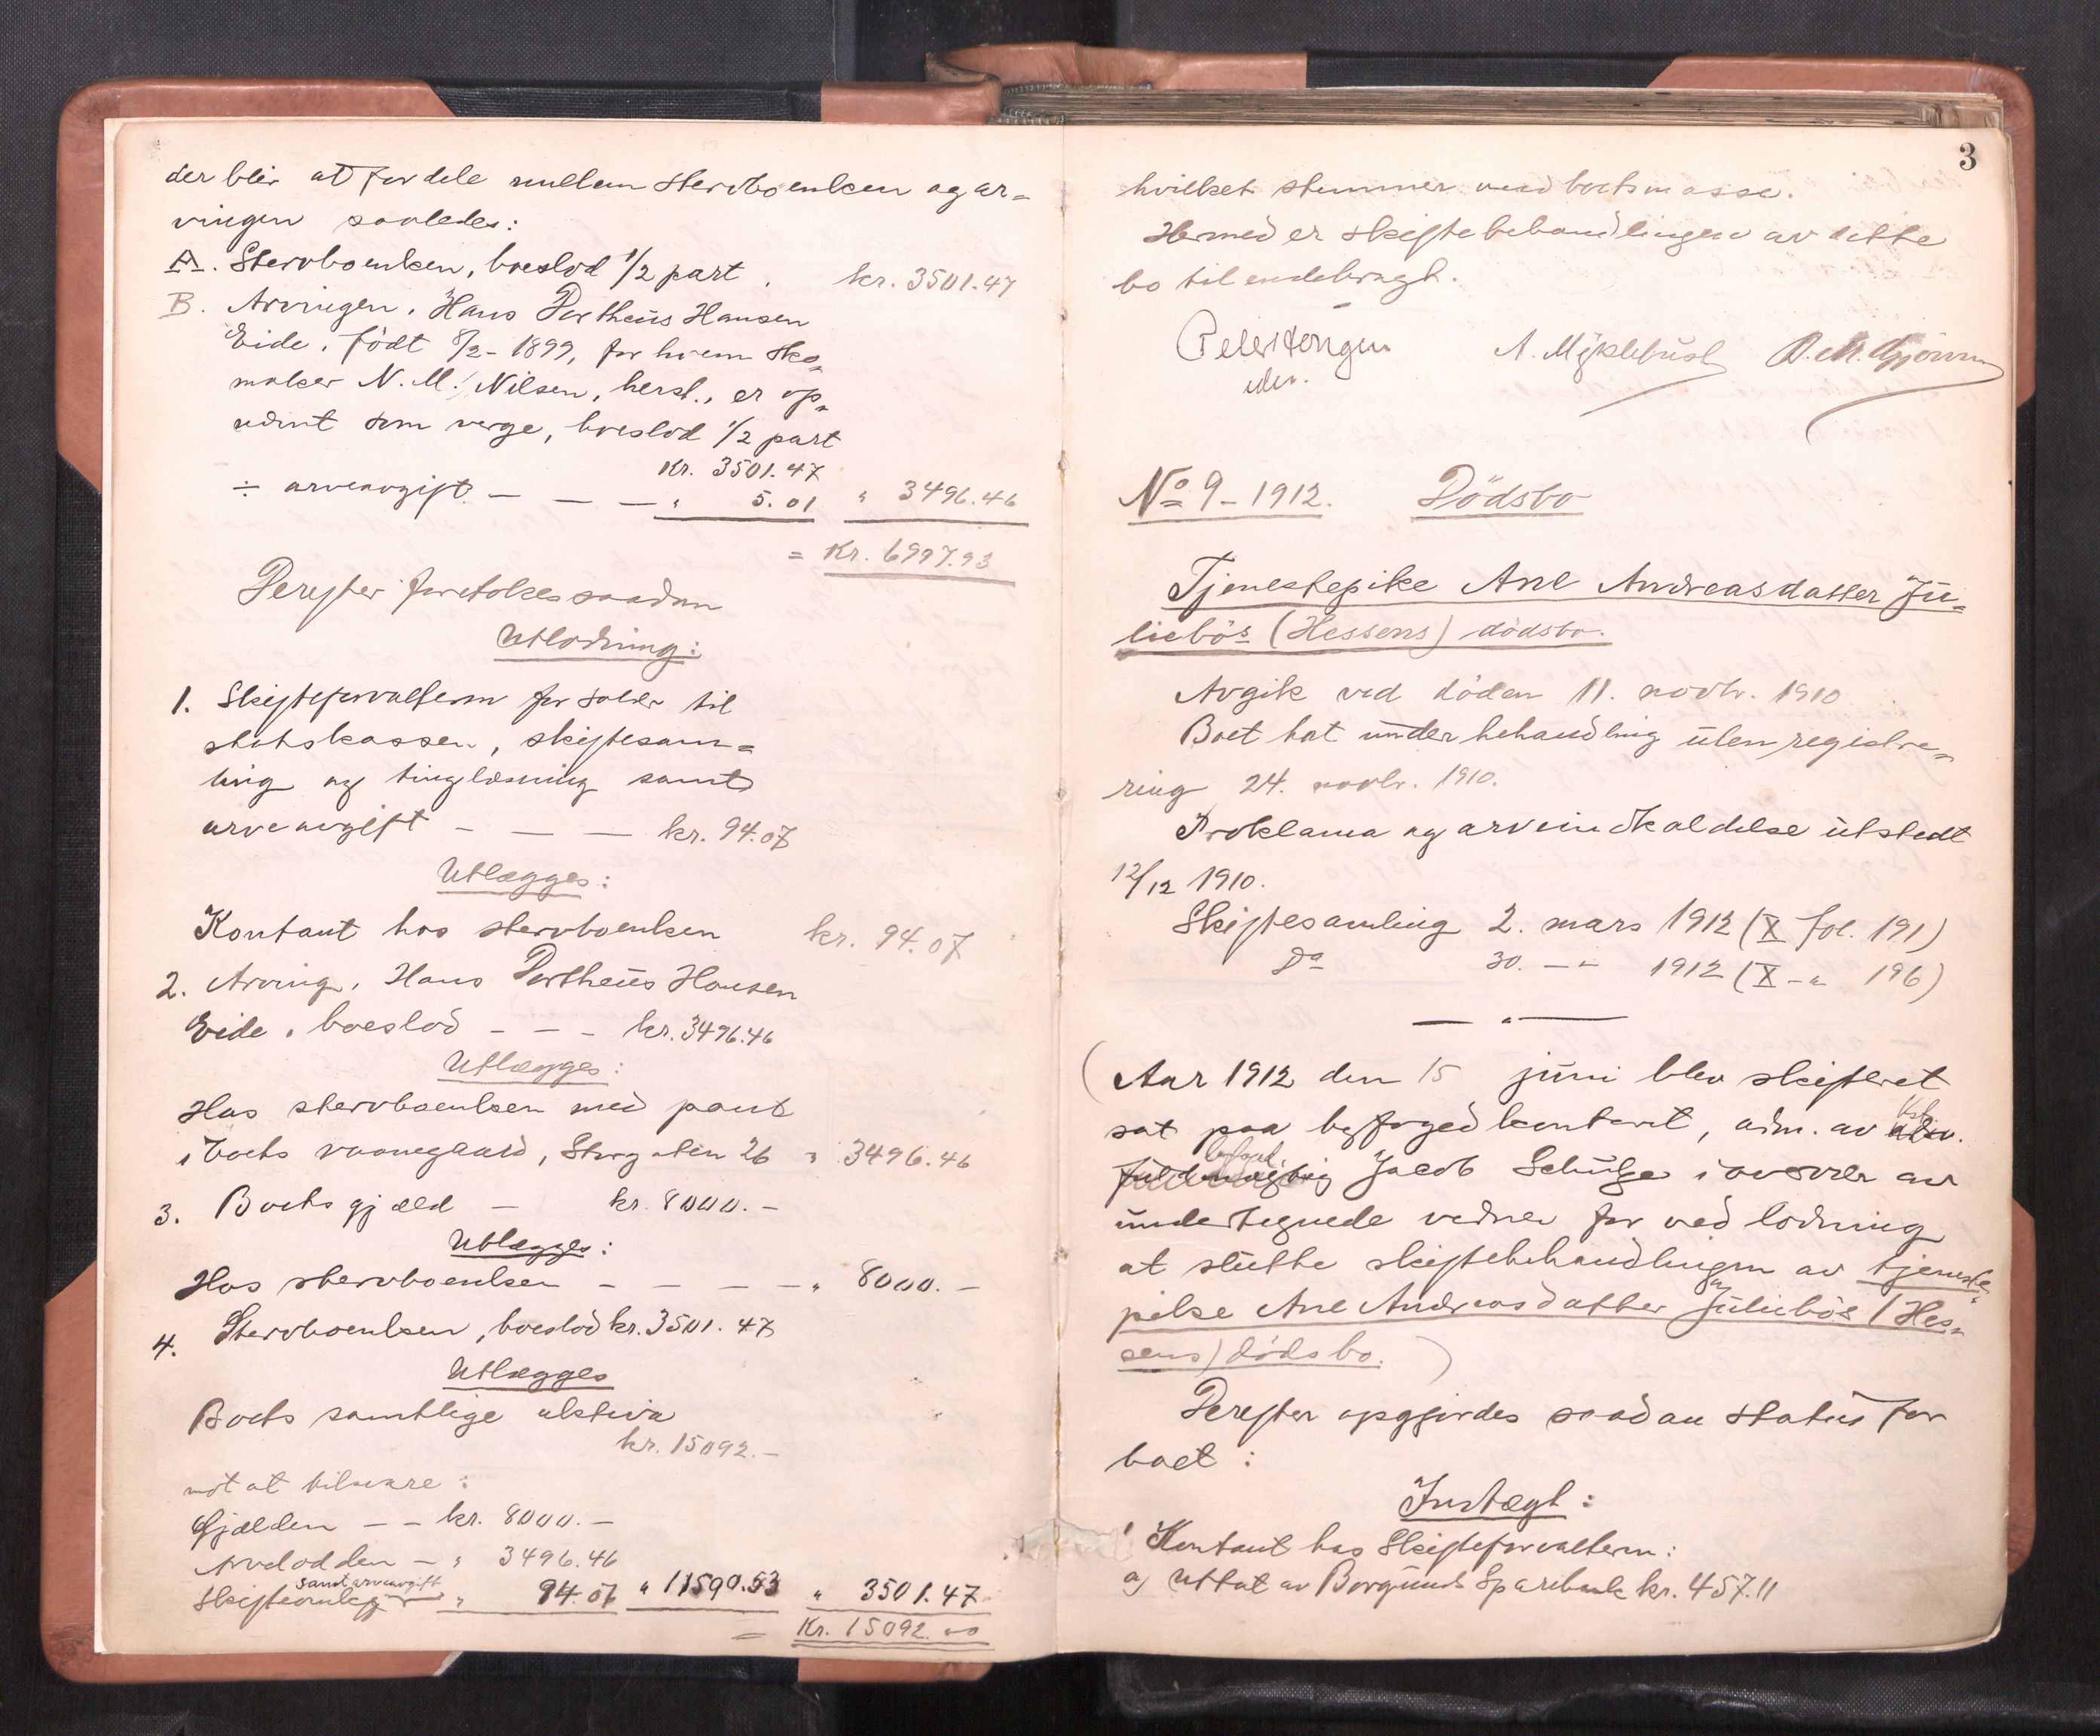 der blir at fordele mellem stervboenken og ar-
vingen saaledes:
A. Stervboenken, boeslod 1/2 part . kr. 3501.47
B. Arvingen, Hans Dortheus Hansen
Eide, født 8/2-1899, for hvem sko-
maker N. M. Nilsen, herst., er op-
nævnt som verge, boeslod 1/2 part
kr. 3501.47
÷ arveavgift — — — " 5.01 " 3496.46
= Kr. 6997.93
Derefter foretokes saadan
Utlodning:
1. Skifteforvalteren for salær til
statskassen, skiftesam-
ling og tinglæsning samt
arveavgift — — — kr. 94.07
Utlægges:
Kontant hos stervboenken kr. 94.07
2. Arving, Hans Dortheus Hansen
Eide, boeslod — — — kr. 3496.46
Utlægges:
Hos stervboenken med pant
i boets vaanegaard, Storgaten 26 " 3496.46
3. Boets gjæld — kr. 8000.—
Utlægges:
Hos stervboenken — — — — " 8000.—
4. Stervboenken, boeslod kr. 3501.47
Utlægges
Boets samtlige aktiva
kr. 15092.—
mot at tilsvare:
Gjælden — — kr. 8000.—
Arvelodden — " 3496.46
samt arveavgift
Skifteomkostn. " 94.07 " 11590.53 " 3501.47
= Kr. 15092.00
3
hvilket stemmer med boets masse.
Hermed er skiftebehandlingen av dette
bo tilendebragt.
A. Myklebust
No 9-1912. Dödsbo
Tjenestepike Ane Andreasdatter Ju-
liebös (Hessens) dödsbo.
Avgik ved döden 11. novbr. 1910
Boet tat under behandling uten registre-
ring 24. novbr. 1910.
Proklama og arveindkaldelse utstedt
12/12 1910.
Skiftesamling 2. mars 1912 (X fol. 191)
Do 30. —"— 1912 (X —"— 196)
— " —
(Aar 1912 den 15 juni blev skifteret
sat paa byfogedkontoret, adm. av Kst.
byfoged
fuldmægtig Jacob Schulze i overvær av
undertegnede vidner for ved lodning
at slutte skiftebehandlingen av tjeneste-
pike Ane Andreasdatter Juliebös (Hes-
sens) dödsbo.)
Derefter opgjordes saadan status for
boet:
Indtægt:
1 Kontant hos Skifteforvalteren:
a) Uttat av Borgunds Sparebank kr. 457.11